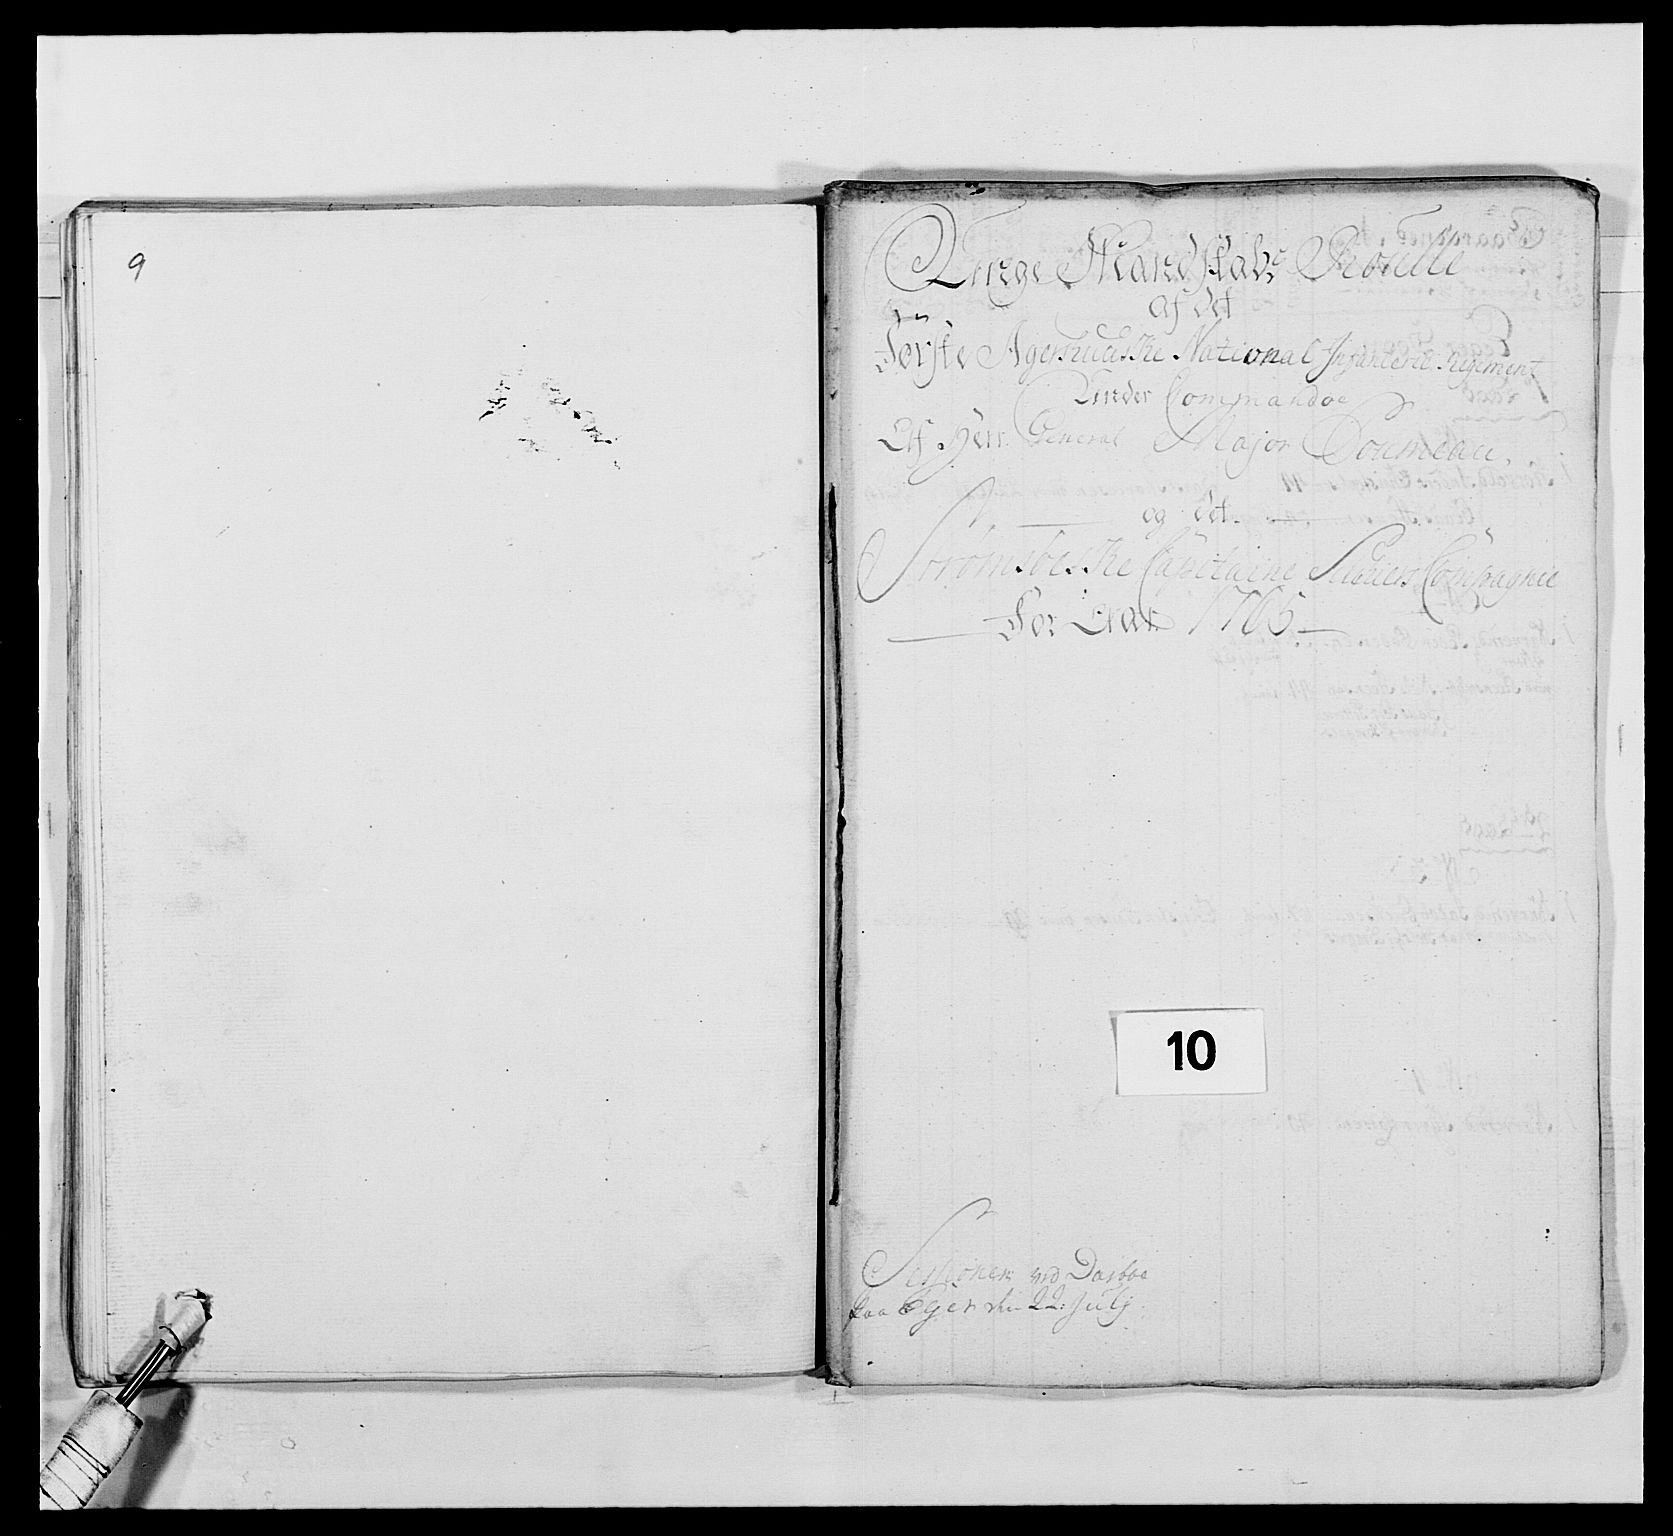 9
Unge Mandskabs Roulle
af det
Første Agerhuusske National Infanterie Regiment
Under Commandoe
Af Herr General Major Doumeau,
og det
Strømsbeeske Capitaine Compagnie
For Aar 1765
10
Sessionen ved Darboe
paa Eger den 22: Julj